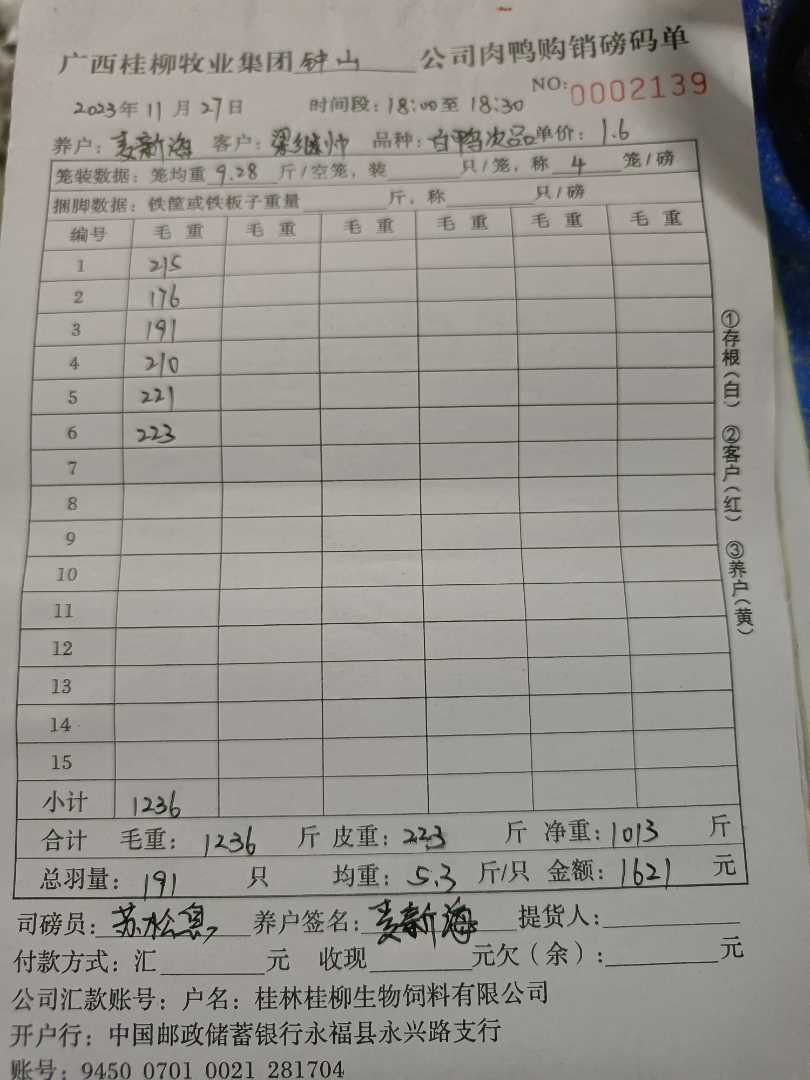 广西桂柳牧业集团钟山公司肉鸭购销磅码单
NO: 0002139
2023年11月27日 时间段: 18:00至18:30
养户: 麦新海 客户: 梁继帅 品种: 白鸭次品 单价: 1.6
笼装数据: 笼均重 9.28 斤/空笼, 装 只/笼, 称 4 笼/磅
捆脚数据: 铁筐或铁板子重量 斤, 称 只/磅
编号 毛重 毛重 毛重 毛重 毛重 毛重
1 215
2 176
3 191
4 210
5 221
6 223
7
8
9
10
11
12
13
14
15
小计 1236
合计 毛重: 1236 斤 皮重: 223 斤 净重: 1013 斤
总羽量: 191 只 均重: 5.3 斤/只 金额: 1621 元
司磅员: 苏松 养户签名: 麦新海 提货人:
付款方式: 汇 元 收现 元欠(余): 元
公司汇款账号: 户名: 桂林桂柳生物饲料有限公司
开户行: 中国邮政储蓄银行永福县永兴路支行
账号: 9450 0701 0021 281704
①存根(白) ②客户(红) ③养户(黄)